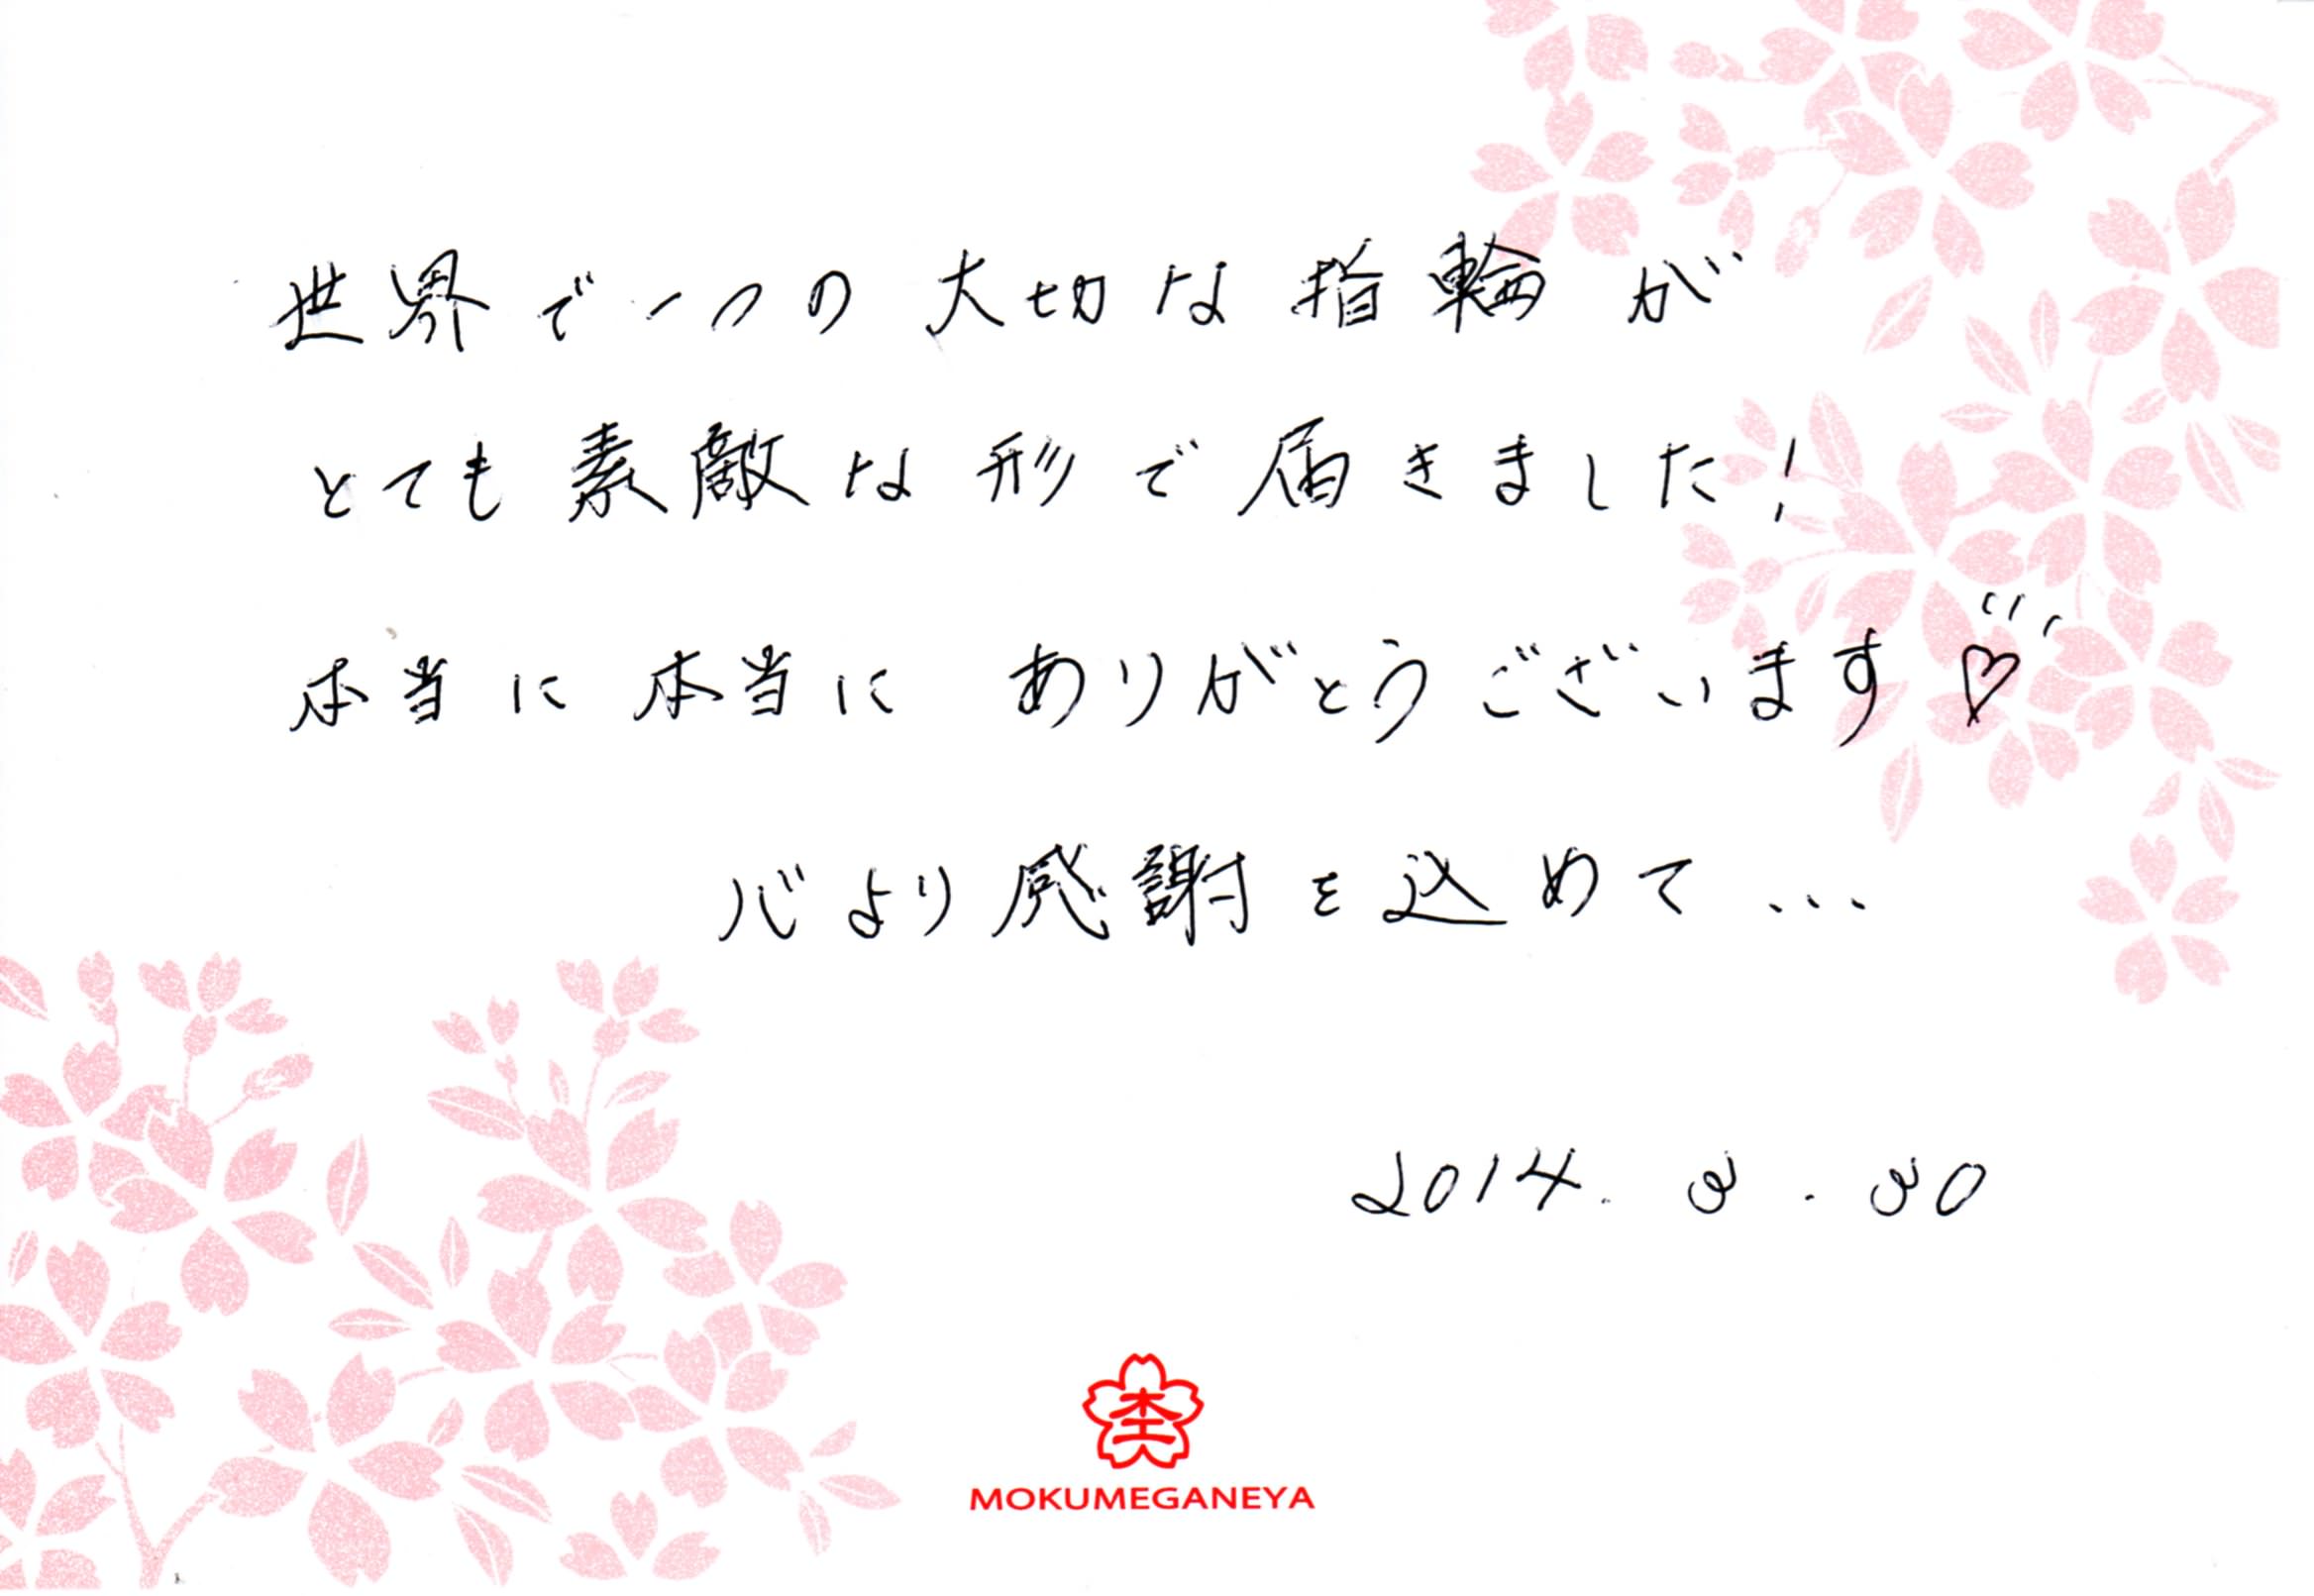 世界で一つの大切な指輪が
とても素敵な形で届きました!
本当に本当に ありがとうございます♡
心より感謝を込めて...
2014. 3. 30
MOKUMEGANEYA